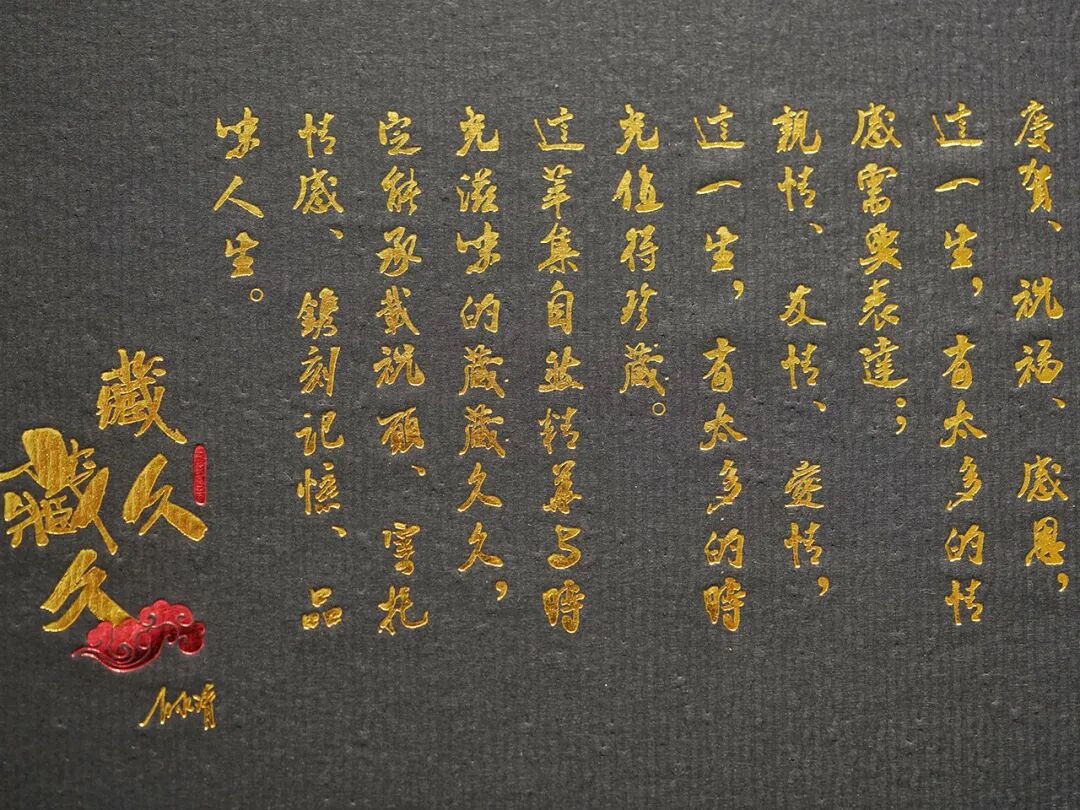 慶賀、祝福、感恩，
這一生，有太多的情
感需要表達；
親情、友情、愛情，
這一生，有太多的時
光值得珍藏。
這萃集自然精華與時
光滋味的藏藏久久，
定能承載祝願、寄托
情感、鐫刻記憶、品
味人生。
藏久
藏久